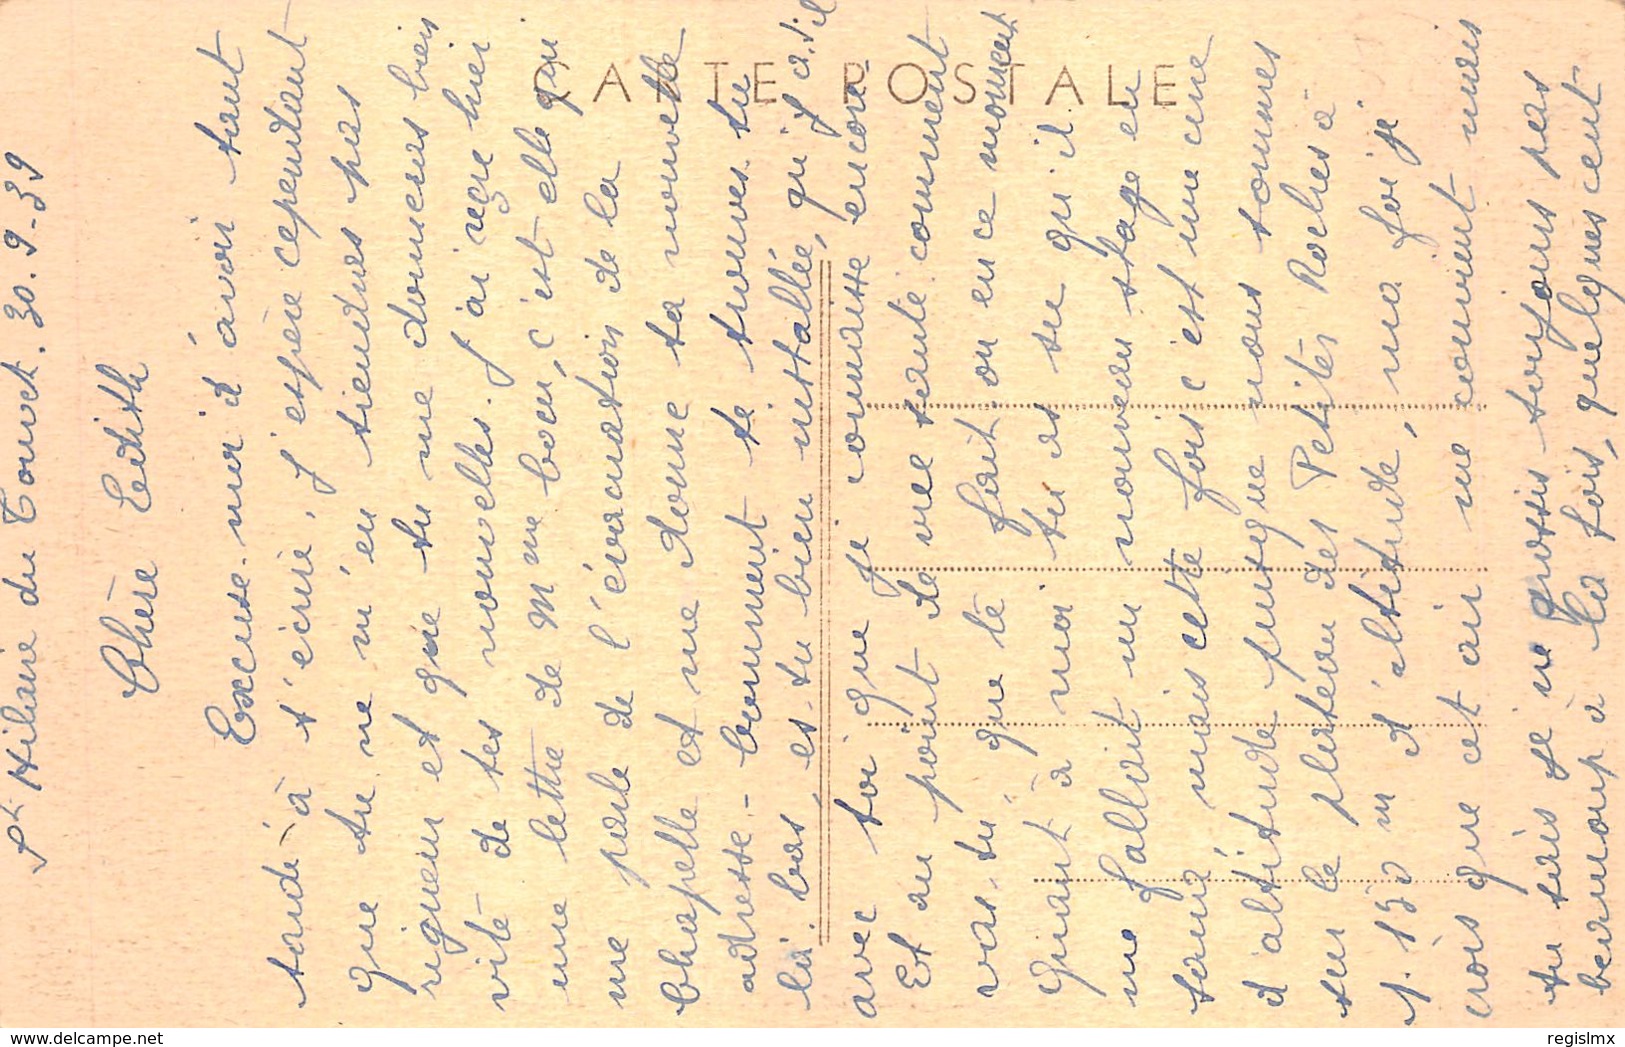 St Hilaire du Touvet. 30.9-39
Chère Edith
Excuse-moi d'avoir tant
tardé à t'écrire, j'espère cependant
que tu ne m'en tiendras pas
rigueur et que tu me donneras bien
vite de tes nouvelles. J'ai reçu hier
une lettre de Mme c'est elle qui
me parle de l'évacuation de la
Chapelle et me donne ta nouvelle
adresse - Comment te trouves-tu
là-bas, es-tu bien installée, qui y a-t-il
avec toi que je connaisse encore
Et au point de vue santé comment
vas-tu que te fait on en ce moment
Quant à moi tu as su qu'il
me fallait un nouveau stage en
sana mais cette fois c'est une cure
d'altitude puisque nous sommes
sur le plateau des Petites Roches à
1.150 m d'altitude, ma foi je
crois que cet air me convient mais
tu sais je ne grossis toujours pas
beaucoup à la fois, quelques cent
CARTE POSTALE
delcampe.net
regislmx